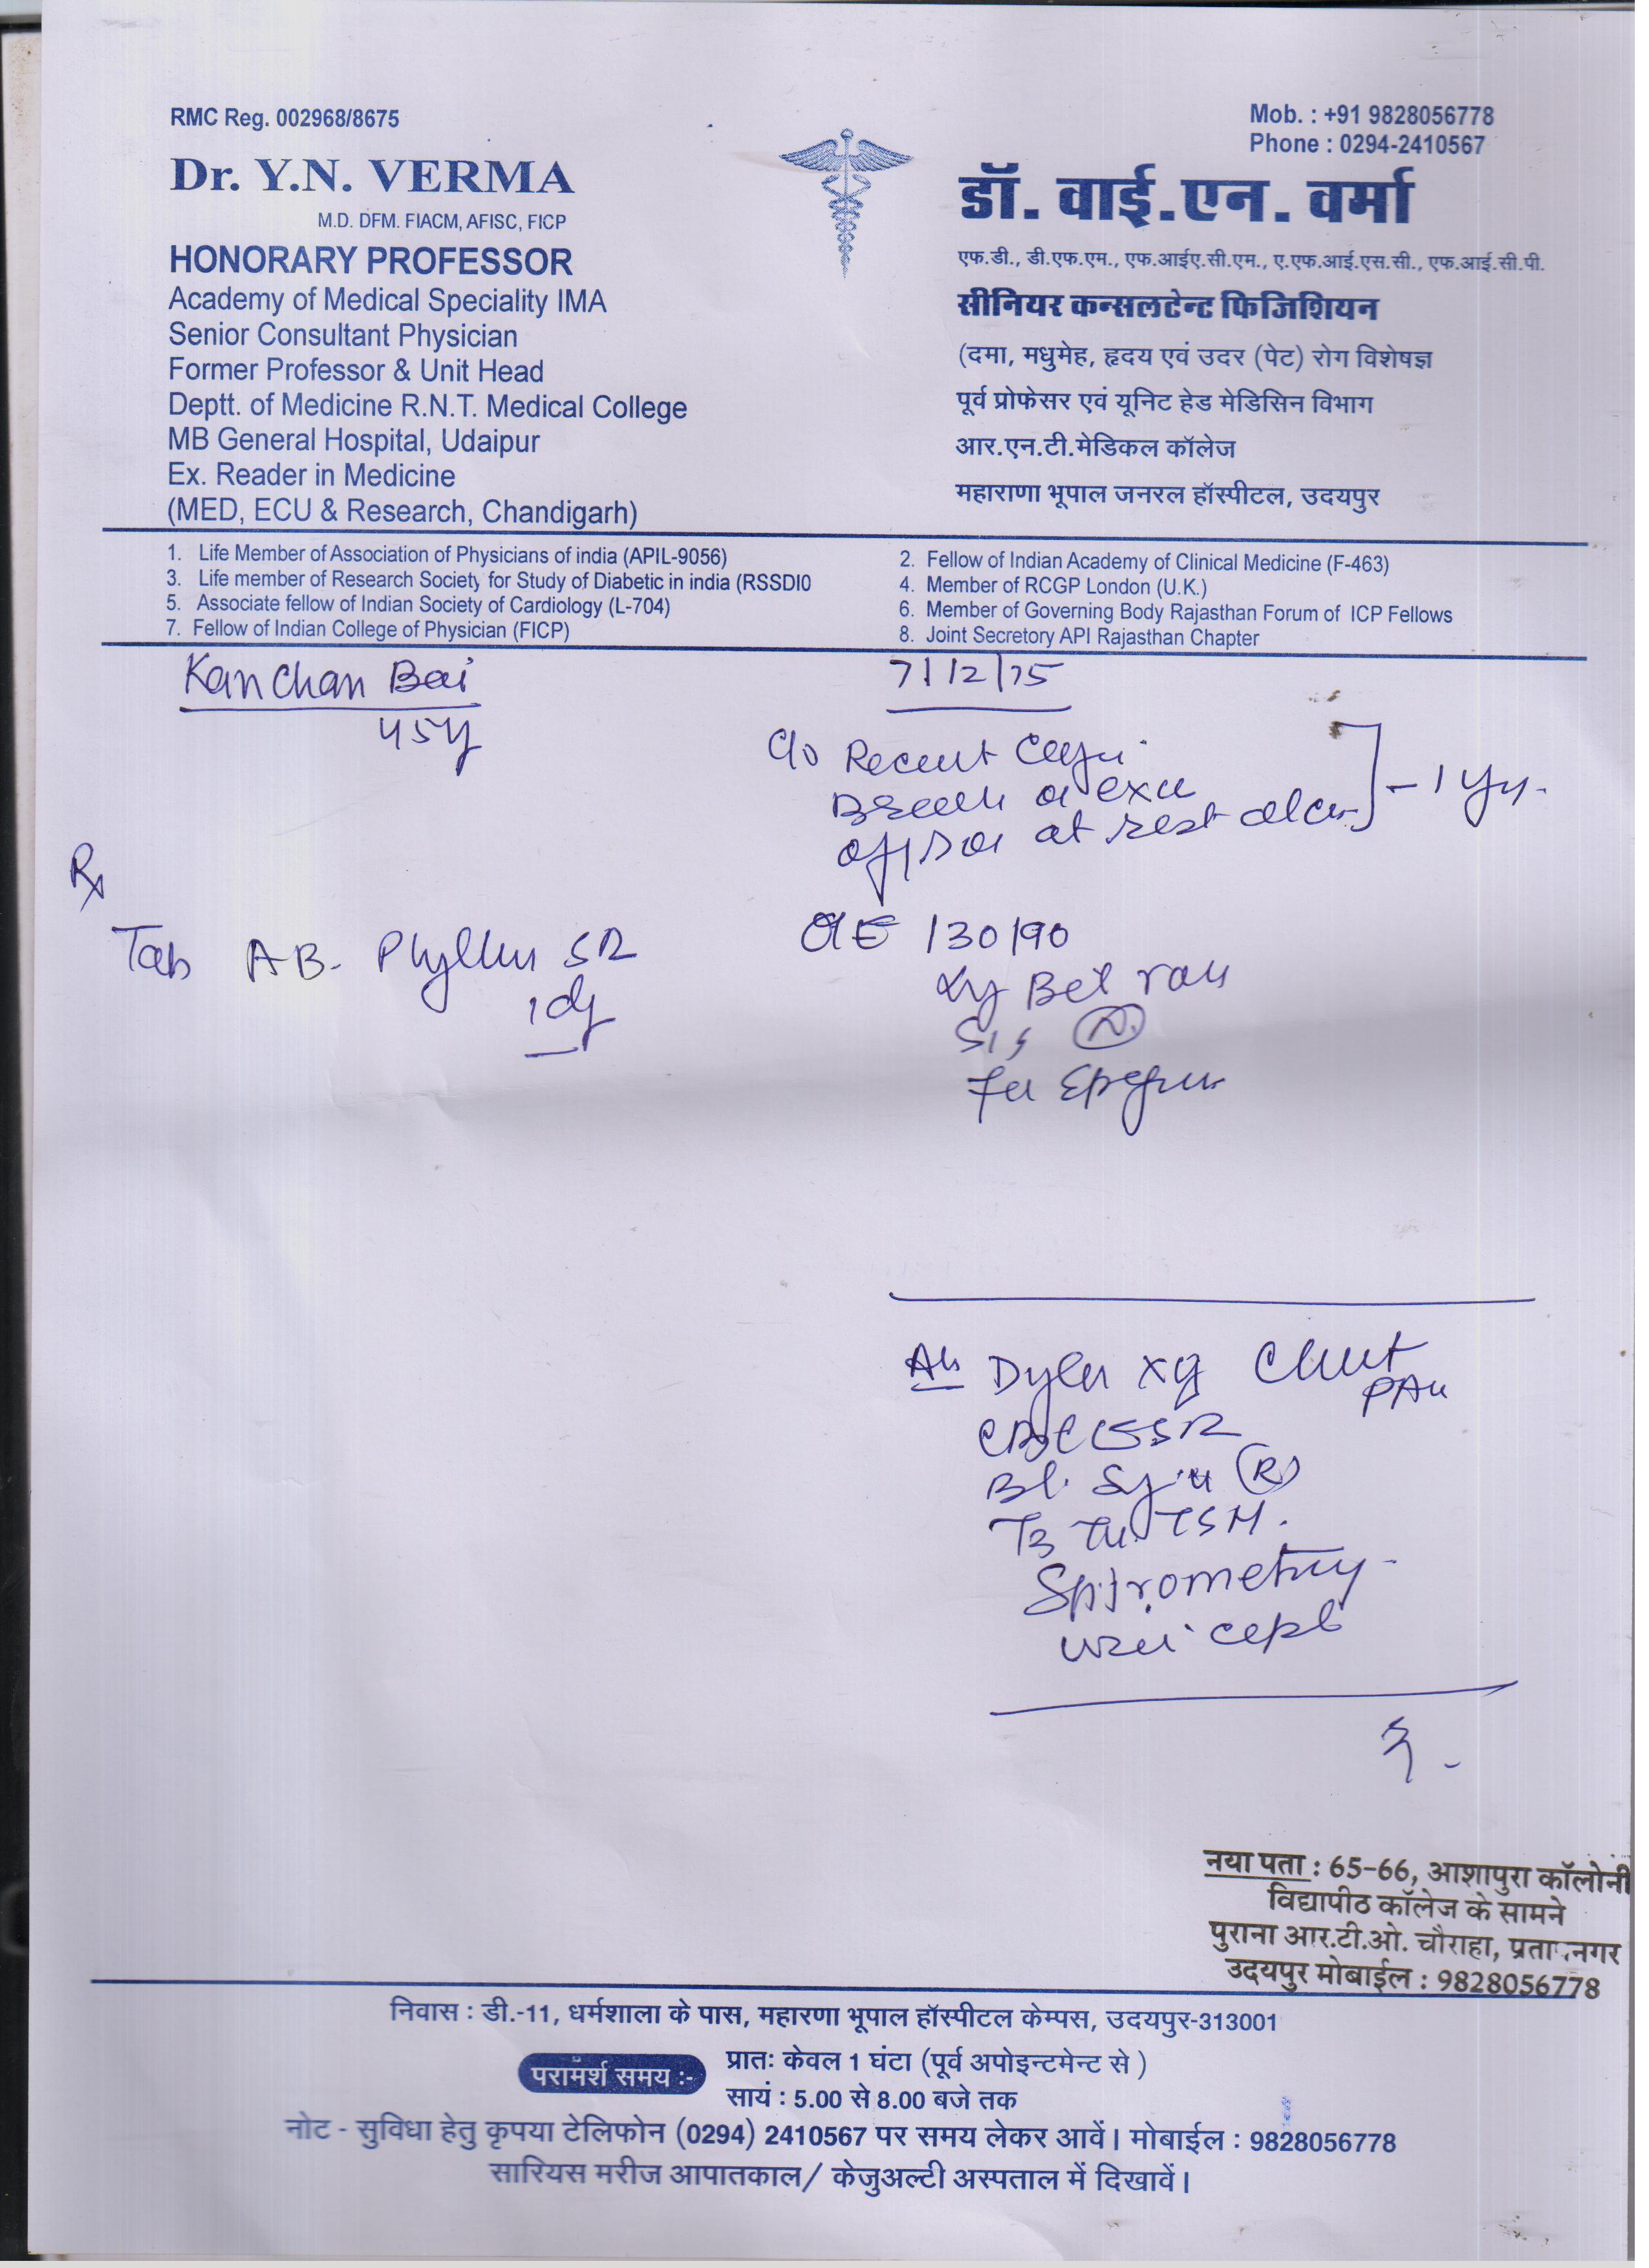 RMC Reg. 002968/8675
Mob. : +91 9828056778
Phone : 0294-2410567
Dr. Y.N. VERMA
M.D. DFM. FIACM, AFISC, FICP
HONORARY PROFESSOR
Academy of Medical Speciality IMA
Senior Consultant Physician
Former Professor & Unit Head
Deptt. of Medicine R.N.T. Medical College
MB General Hospital, Udaipur
Ex. Reader in Medicine
(MED, ECU & Research, Chandigarh)
डॉ. वाई.एन. वर्मा
एफ.डी., डी.एफ.एम., एफ.आईए.सी.एम., ए.एफ.आई.एस.सी., एफ.आई.सी.पी.
सीनियर कन्सलटेन्ट फिजिशियन
(दमा, मधुमेह, हृदय एवं उदर (पेट) रोग विशेषज्ञ
पूर्व प्रोफेसर एवं यूनिट हेड मेडिसिन विभाग
आर.एन.टी.मेडिकल कॉलेज
महाराणा भूपाल जनरल हॉस्पीटल, उदयपुर
1. Life Member of Association of Physicians of india (APIL-9056)
2. Fellow of Indian Academy of Clinical Medicine (F-463)
3. Life member of Research Society for Study of Diabetic in india (RSSDI0
4. Member of RCGP London (U.K.)
5. Associate fellow of Indian Society of Cardiology (L-704)
6. Member of Governing Body Rajasthan Forum of ICP Fellows
7. Fellow of Indian College of Physician (FICP)
8. Joint Secretary API Rajasthan Chapter
Kanchan Bai
45y
c/o Recent
at rest
- 1 yr.
Rx
Tab AB. Phyllin SR
O/E 130/90
Chest
PA
CBC ESR
Bl. (R)
T3 T4 TSH.
Spirometry
नया पता : 65-66, आशापुरा कॉलोनी
विद्यापीठ कॉलेज के सामने
पुराना आर.टी.ओ. चौराहा, नगर
उदयपुर मोबाईल : 9828056778
निवास : डी.-11, धर्मशाला के पास, महारणा भूपाल हॉस्पीटल केम्पस, उदयपुर-313001
परामॅर्श समय :-
प्रातः केवल 1 घंटा (पूर्व अपोइन्टमेन्ट से )
सायं : 5.00 से 8.00 बजे तक
नोट - सुविधा हेतु कृपया टेलिफोन (0294) 2410567 पर समय लेकर आवें। मोबाईल : 9828056778
सारियस मरीज आपातकाल/ केजुअल्टी अस्पताल में दिखावें।